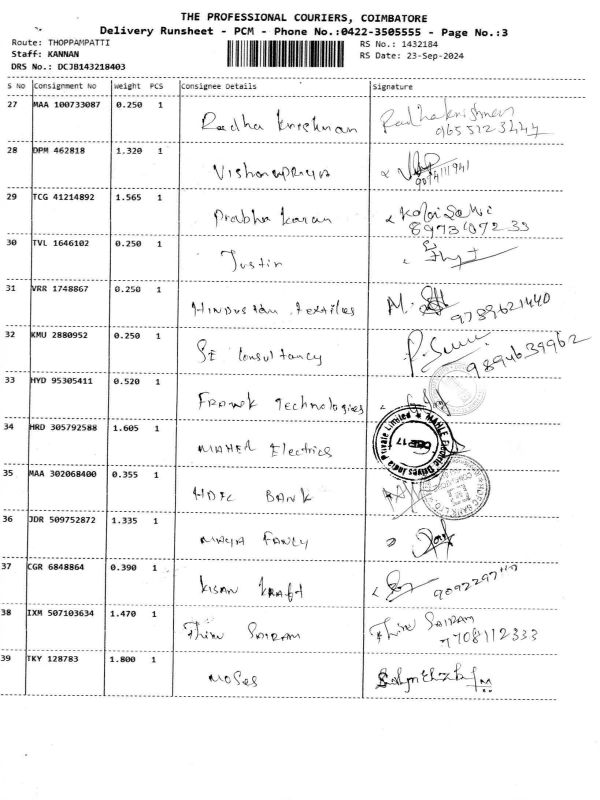 THE PROFESSIONAL COURIERS, COIMBATORE
Delivery Runsheet - PCM - Phone No.:0422-3505555 - Page No.:3
Route: THOPPAMPATTI
RS No.: 1432184
Staff: KANNAN
RS Date: 23-Sep-2024
DRS No.: DCJB143218403
S No Consignment No Weight PCS Consignee Details Signature
27 MAA 100733087 0.250 1 Radha Krishnan Radhakrishnan
9655123447
28 DPM 462818 1.320 1 Vishnupriya
29 TCG 41214892 1.565 1 Prabha Karan
8973107233
30 TVL 1646102 0.250 1 Justin
31 VRR 1748867 0.250 1 Hindustan Textiles M.
9789621440
32 KMU 2880952 0.250 1 SE Consultancy
9894639962
33 HYD 95305411 0.520 1 Technologies
34 HRD 305792588 1.605 1 MAHLE Electrics
MAHLE Electric Drives India Private Limited
35 MAA 302068400 0.355 1 HDFC BANK
HDFC BANK LTD
36 JDR 509752872 1.335 1 MAYA FANCY
37 CGR 6848864 0.390 1 Kisan Kraft
38 IXM 507103634 1.470 1 Thiru SAIRAM Thiru SAIRAM
7708112333
39 TKY 128783 1.800 1 Moses